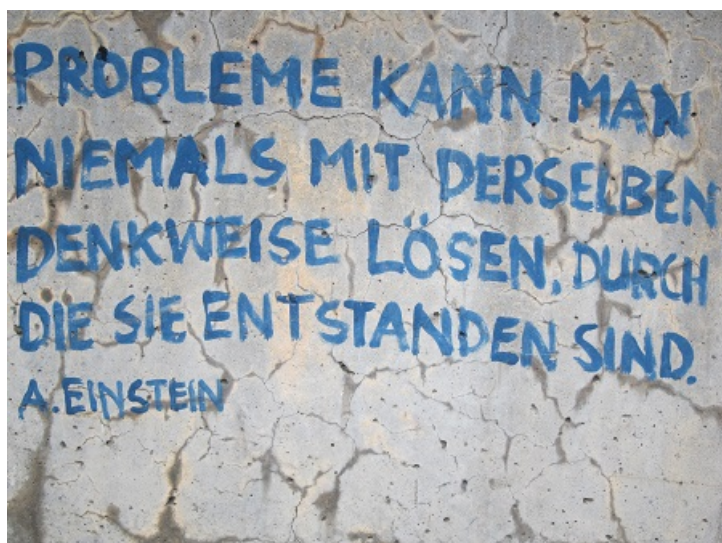 PROBLEME KANN MAN
NIEMALS MIT DERSELBEN
DENKWEISE LÖSEN, DURCH
DIE SIE ENTSTANDEN SIND.
A. EINSTEIN